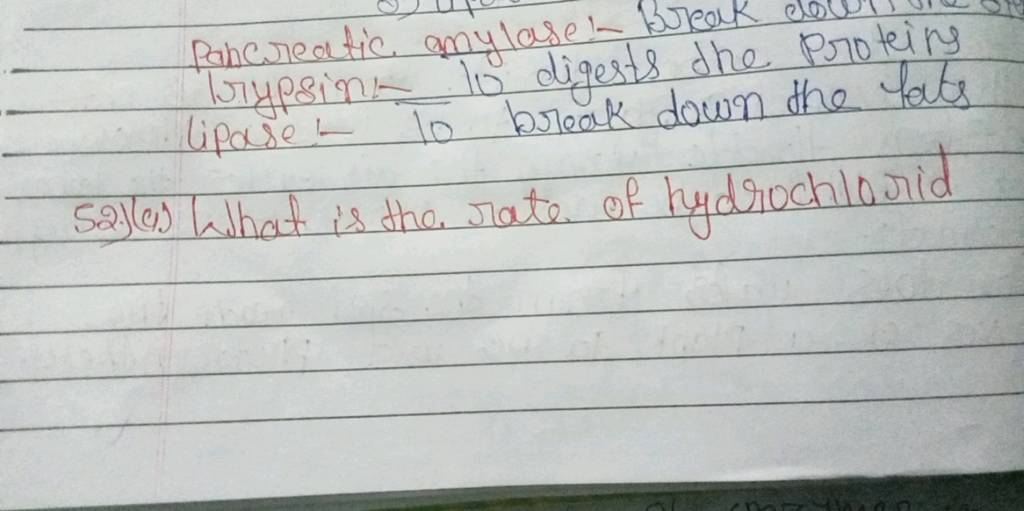 Pancreatic amylase:- Break down the
trypsin:- To digests the Proteins
lipase:- To break down the fats
52)(a) What is the rate of hydrochlorid